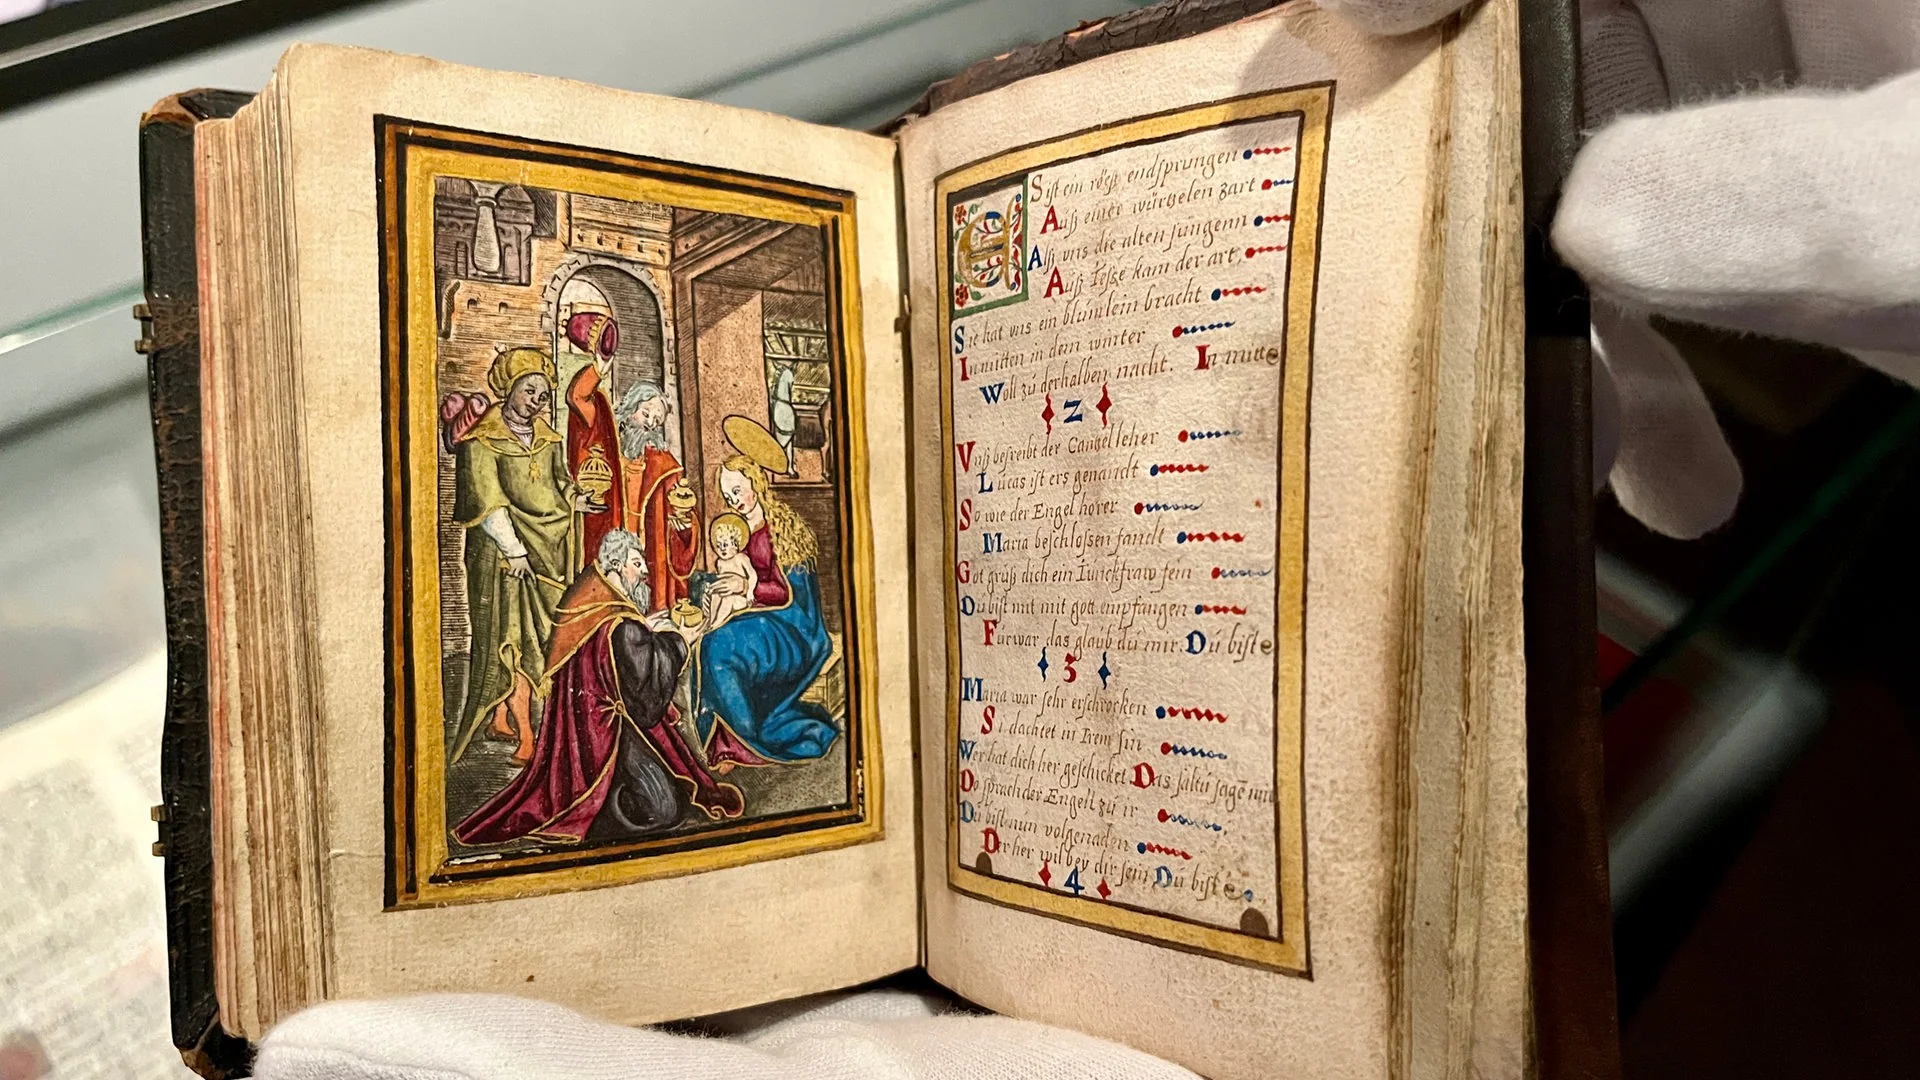 ES ist ein röeß endsprüngen
Auß einer würtzelen zart
Alß vns die alten süngenn
Auß Jesse kam der art,
Sie hat vns ein blümlein bracht
In mitten in dem winter
Woll zü derhalben nacht. In mitte
2
Vnß beschreibt der Cantzelleher
Lucas ist ers genandt
So wie der Engel horer
Maria beschlossen fandt
Got gruß dich ein Junckfraw fein
Du bist mit mit gott empfangen
Furwar das glaub dü mir. Dü biste
3
Maria war sehr erschrocken
Si dachtet in Jrem sin
Wer hat dich her geschicket Das saltü sagē mir
Do sprach der Engell zü ir
Dü bist nün vol genaden
Der her wil bey dir sein Dü biste
4